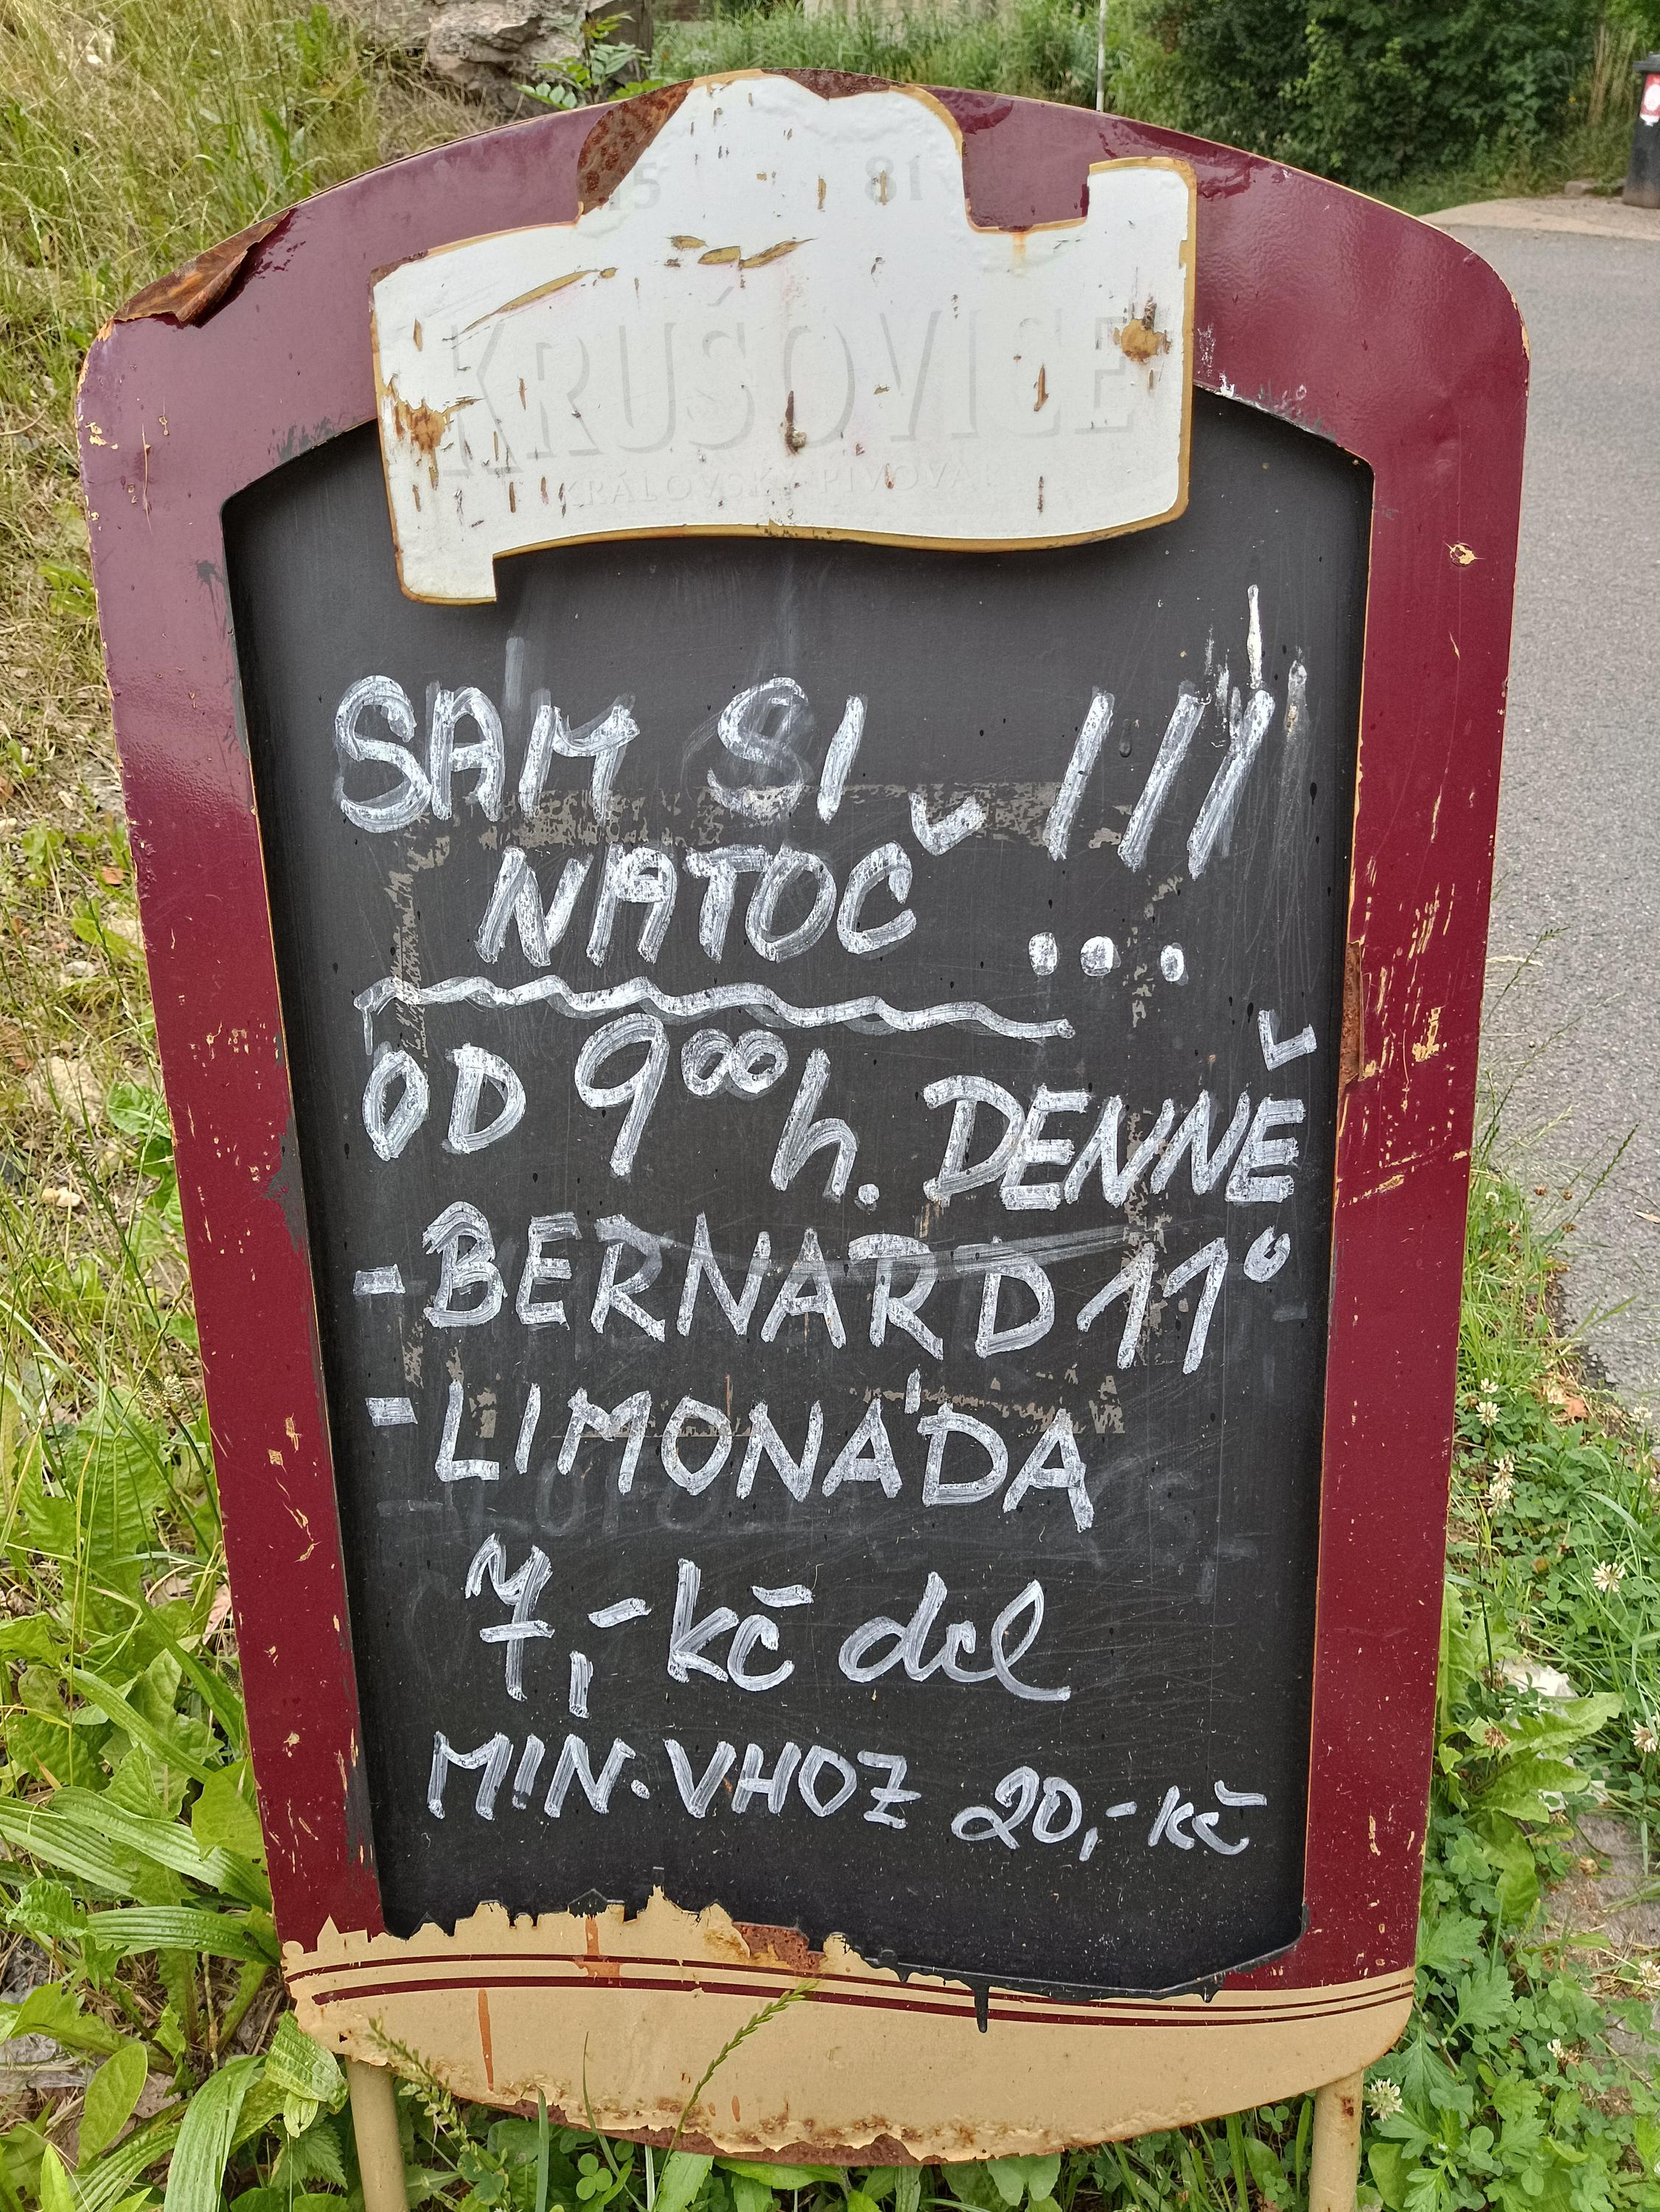 15 81
KRUŠOVICE
KRÁLOVSKÝ PIVOVAR
SAM SI
NATOČ !!!
OD 9⁰⁰ h. DENNĚ
- BERNARD 11°
- LIMONÁDA
7,- kč dcl
MIN. VHOZ 20,- kč